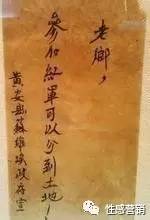 老鄉，
參加紅軍可以分到土地！
黄安县蘇維埃政府宣
性感营销